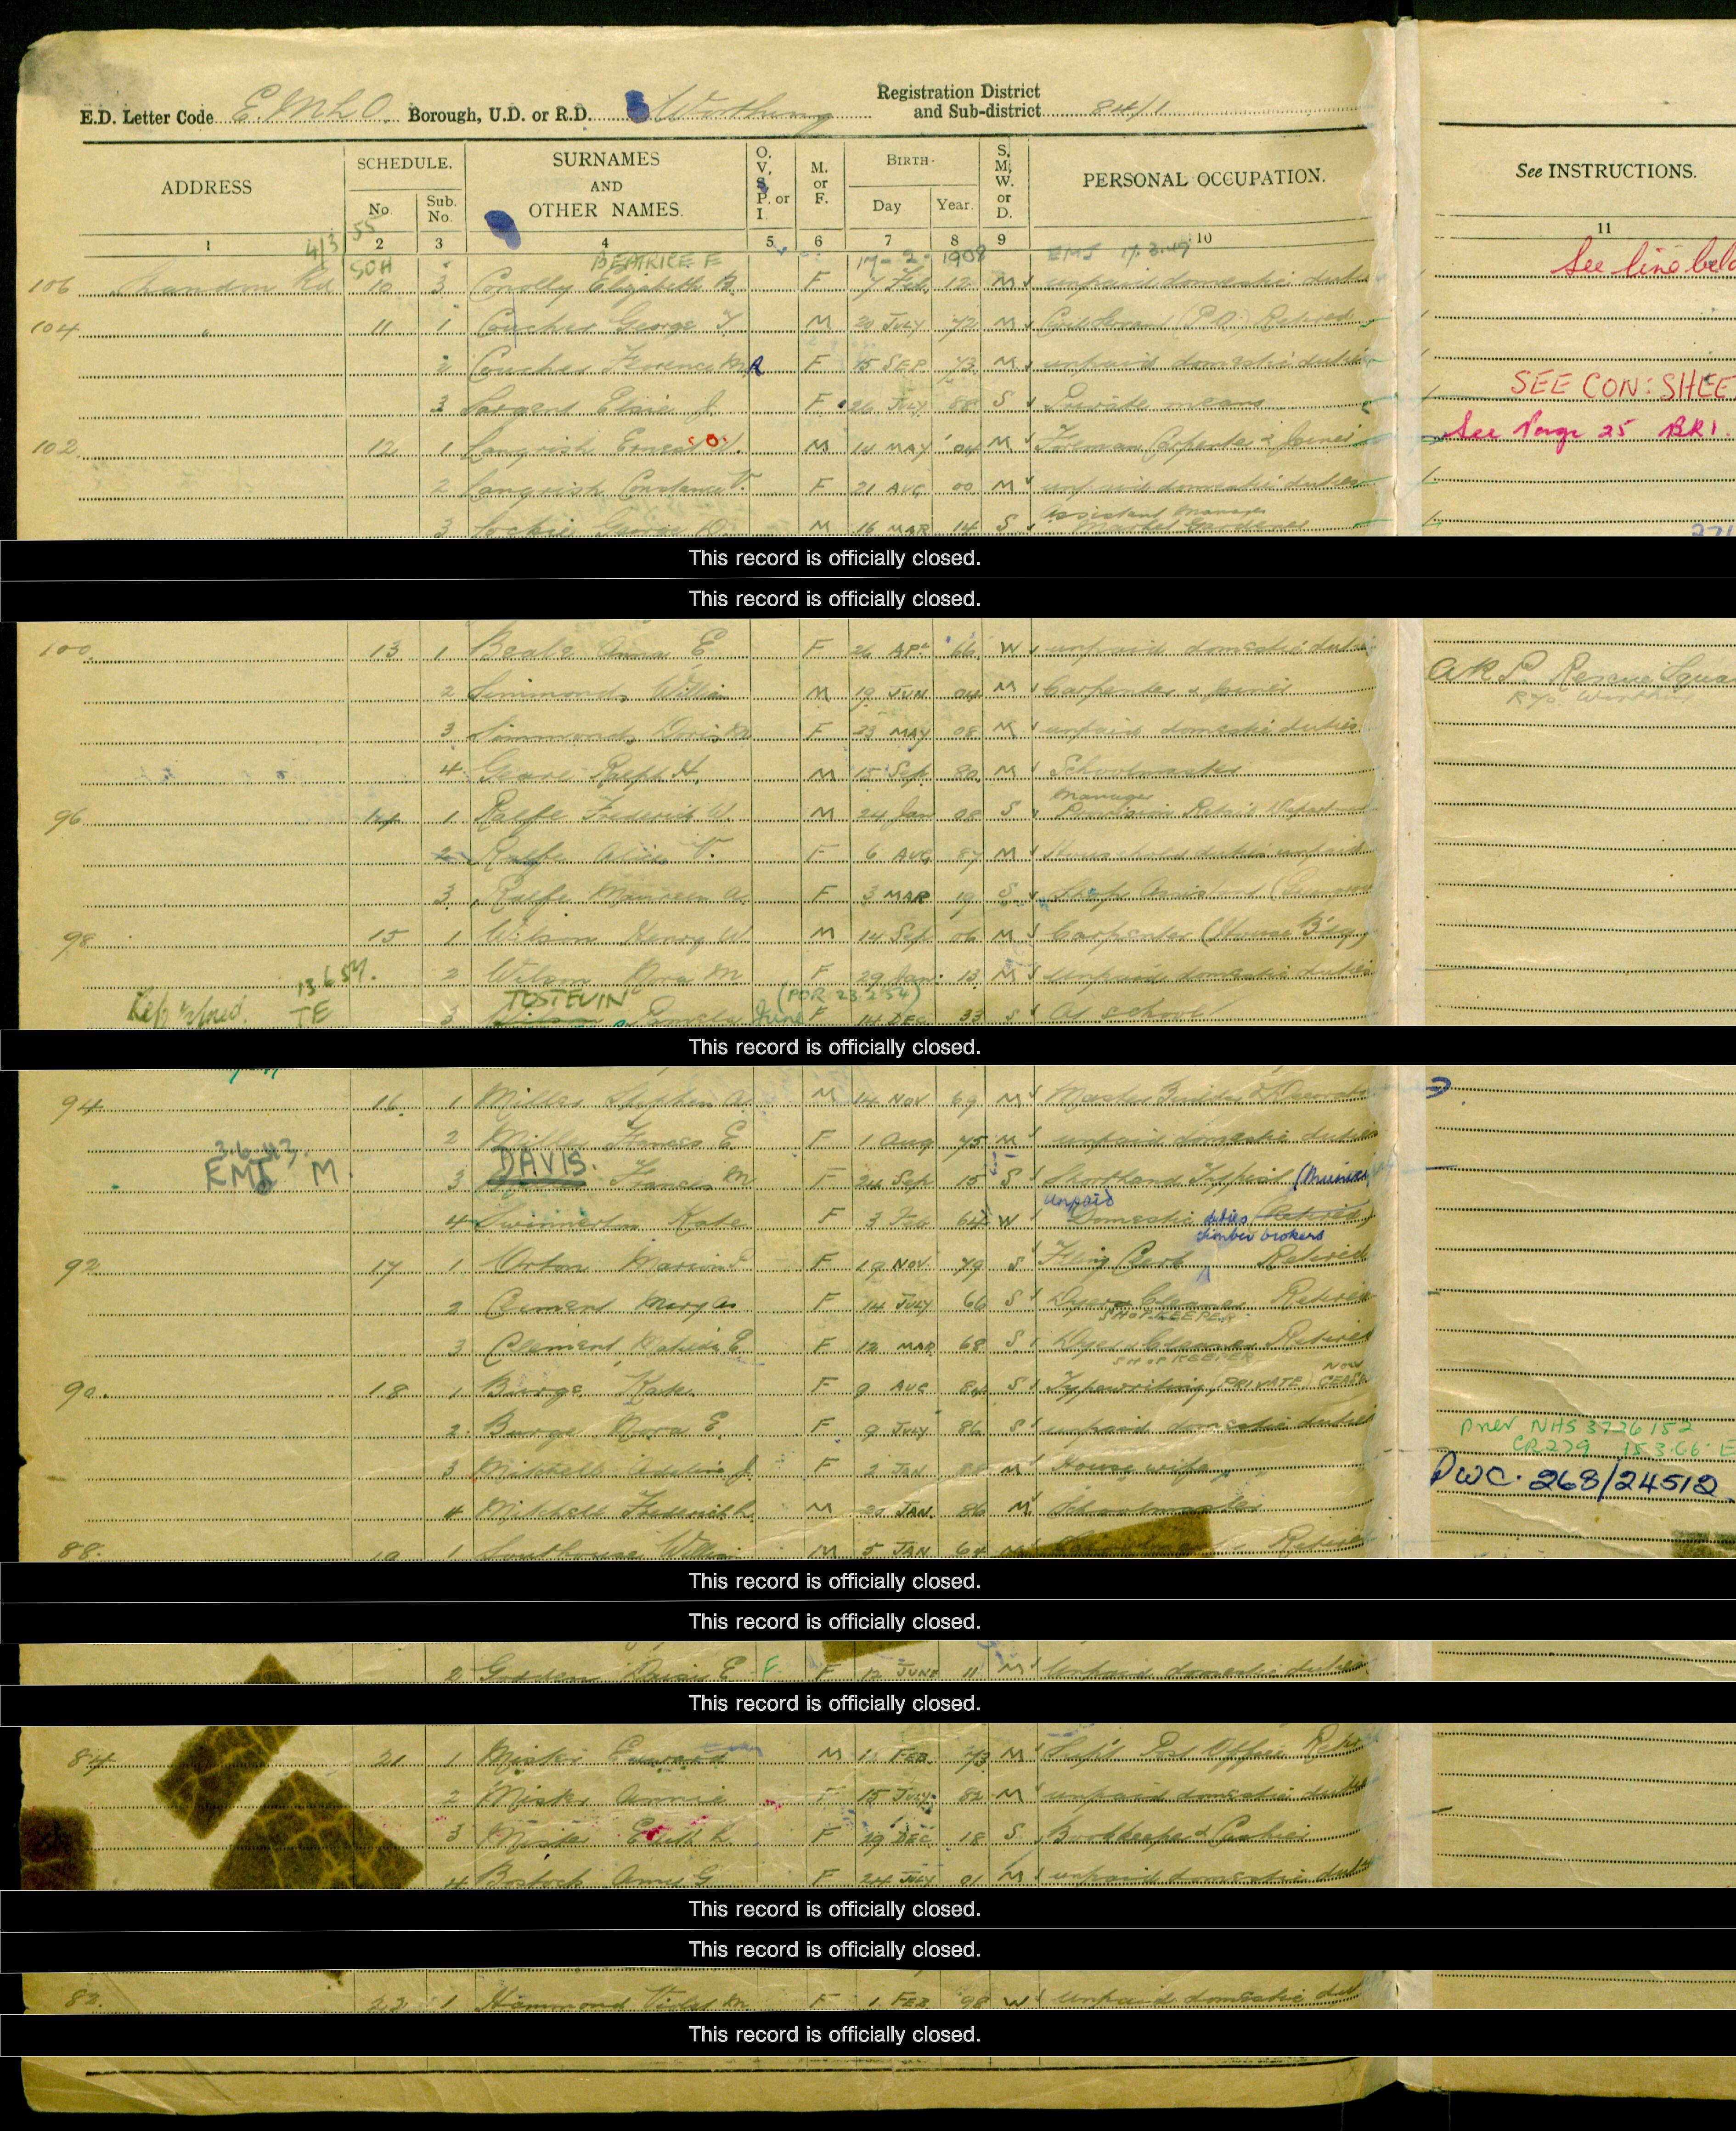 Registration District
E.D. Letter Code Borough, U.D. or R.D. Worthing and Sub-district 84/1
ADDRESS SCHEDULE. SURNAMES AND OTHER NAMES. O. V. S. P. or I. M. or F. BIRTH- S. M. W. or D. PERSONAL OCCUPATION. See INSTRUCTIONS.
No. Sub. No. Day Year.
55
1 4/3 2 3 4 5 6 7 8 9 10 11
SOH BEATRICE E 17-2-1908 EMS See line
106 10 3 Conolly Elizabeth B. F 7 Feb 12 M unpaid domestic duties
104 " 11 1 George M 20 JULY 72 M Civil Servant (P.O.) Retired
2 Florence M F 15 SEP 73 M unpaid domestic duties
SEE CON: SHEE
3 Sargent Elsie J. F 26 JULY 88 S Private means
See Page 25 BK1.
102 12 1 Langrish Ernest W. M 14 MAY 04 M Foreman Carpenter & Joiner
2 Langrish Constance V. F 21 AUG 00 M unpaid domestic duties
Assistant Manager
3 Lockie George M 16 MAR 14 S Market Gardener
This record is officially closed.
This record is officially closed.
100 13 1 Beale Anna E F 26 APL 66 W unpaid domestic duties
A.R.P. Rescue Squa
2 Simmonds William M 19 JUN 04 M Carpenter & Joiner
3 Simmonds Doris M F 23 MAY 08 M unpaid domestic duties
4 Ralph H. M 15 Sep 80 M Schoolmaster
Manager
96 14 1 Ralfe Frederick W. M 24 Jan 08 S
2 Ralfe Alice V. F 6 AUG 87 M Household duties unpaid
3 Ralfe Maureen A. F 3 MAR 19 S Shop Assistant
98 15 1 Wilson Henry W M 14 Sep 06 M Carpenter (House Bldg)
13.6.57.
2 Wilson Nora M F 29 Jan 13 M unpaid domestic duties
TOSTEVIN (POR 23.2.54)
TE 3 Wilson Pamela June F 14 DEC 33 S At school
This record is officially closed.
94 16 1 Miller Stephen A. M 14 NOV 69 M Master Builder & Decorator
2 Miller Frances E F 1 Aug 75 M unpaid domestic duties
3.6.43 DAVIS.
EMS M. 3 Frances M F 24 Sep 15 S Shorthand Typist
unpaid
4 Swinnerton Kate F 3 Feb 64 W Domestic duties (Retired)
timber brokers
92 17 1 Orton Marion F 19 NOV 79 S Filing Clerk Retired
2 Clement Mary A F 14 JULY 66 S Dyers Cleaner Retired
SHOPKEEPER
3 Clement Matilda E F 12 MAR 68 S Dyers Cleaner Retired
SHOPKEEPER NOW
90. 18 1 Burge Kate F 9 AUG 84 S Typewriting (PRIVATE) CEASE
2 Burge Nora E. F 9 JULY 86 S unpaid domestic duties
NHS 3726152
CR279 15.3.66
3 Mitchell Adeline J. F 2 JAN 88 M House wife
DWC. 268/24512.
4 Mitchell Frederick M 20 JAN. 86 M Schoolmaster
88. 19 1 Southouse William M 5 JAN 64 M Retired
This record is officially closed.
This record is officially closed.
2 Godden Daisy E F F 12 JUNE 11 M Unpaid domestic duties
This record is officially closed.
84 21 1 Edward M 1 FEB. 73 M Supt Post Office Retd
2 Annie F 15 JULY 82 M unpaid domestic duties
3 Edith F 29 DEC 18 S Bookkeeper & Cashier
4 Bostock Amy G F 24 JULY 01 M unpaid domestic duties
This record is officially closed.
This record is officially closed.
82. 22 1 Hammond Violet M F 1 FEB 98 W unpaid domestic dut
This record is officially closed.